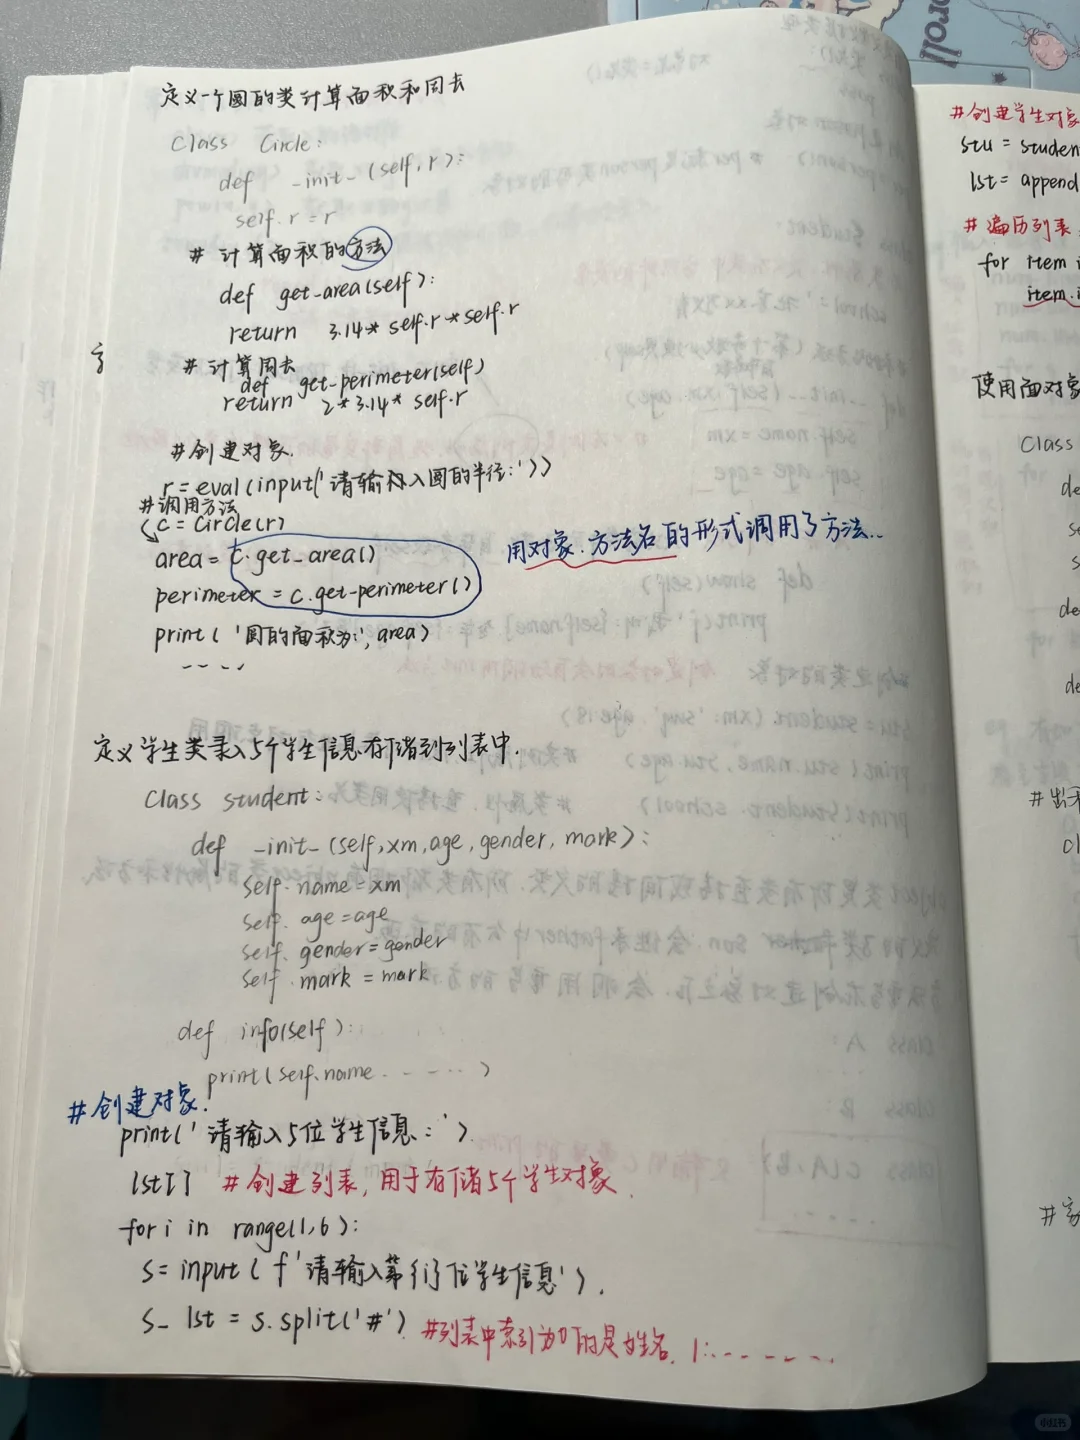 定义一个圆的类计算面积和周长
class Circle:
def _init_(self, r):
self.r = r
# 计算面积的方法
def get_area(self):
return 3.14* self.r *self.r
# 计算周长
def get-perimeter(self)
return 2*3.14* self.r
#创建对象.
r = eval(input('请输入圆的半径:'))
#调用方法
c = Circle(r)
area = c.get_area()
perimeter = c.get-perimeter()
用对象.方法名的形式调用了方法..
print( '圆的面积为:', area)
----
定义学生类录入5个学生信息存储到列表中.
class student:
def _init_(self, xm, age, gender, mark):
self. name = xm
self. age =age
self. gender=gender
self. mark = mark
def info(self):
print(self.name ------)
#创建对象.
print('请输入5位学生信息:')
lst[] #创建列表, 用于存储5个学生对象.
for i in range(1,6):
s= input( f'请输入第{i}位学生信息').
s_ lst = s.split('#') #列表中索引为0的是姓名. 1:------
#创建学生对象
stu = student
lst= append
# 遍历列表
for item i
item.i
使用面对象
class
de
s
de
de
#出
cl
roll
小红书